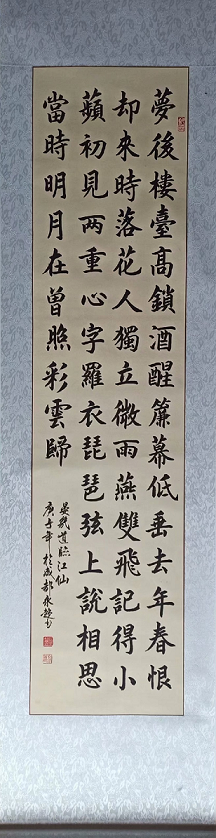 夢後樓臺高鎖酒醒簾幕低垂去年春恨
却來時落花人獨立微雨燕雙飛記得小
蘋初見两重心字羅衣琵琶弦上說相思
當時明月在曾照彩雲歸
晏幾道臨江仙
庚子年於成都永